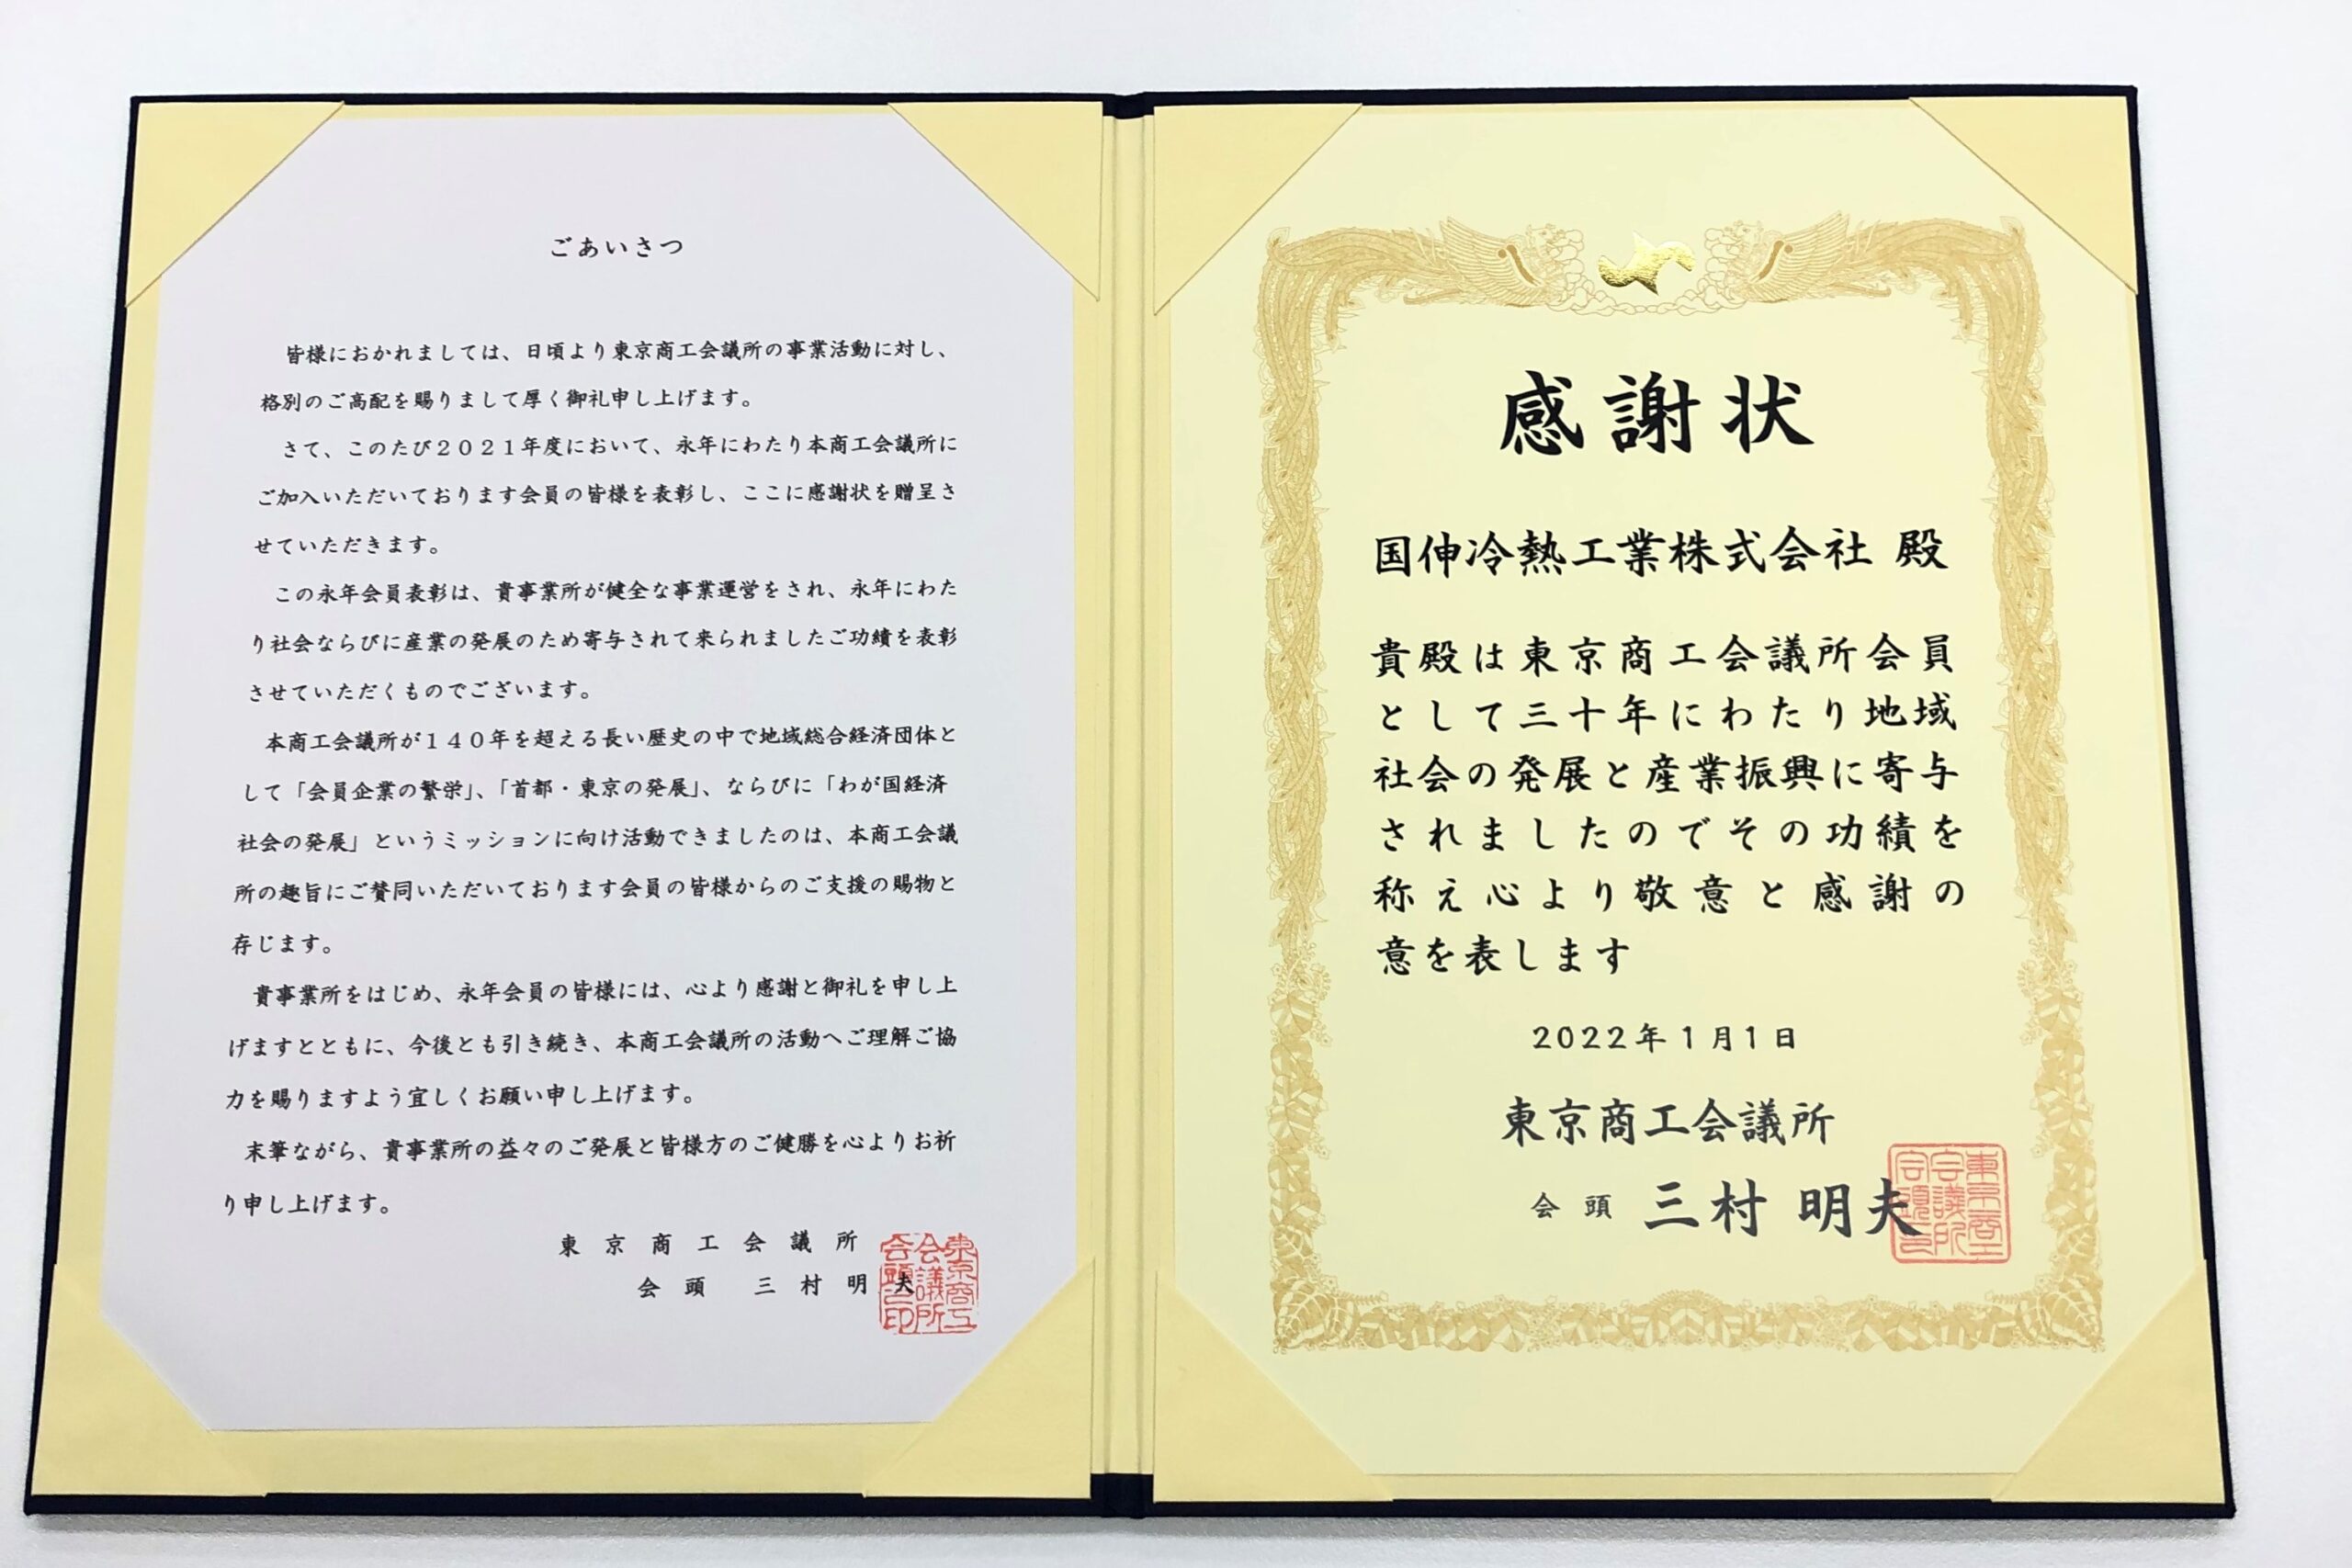 ごあいさつ
皆様におかれましては、日頃より東京商工会議所の事業活動に対し、
格別のご高配を賜りまして厚く御礼申し上げます。
さて、このたび２０２１年度において、永年にわたり本商工会議所に
ご加入いただいております会員の皆様を表彰し、ここに感謝状を贈呈さ
せていただきます。
この永年会員表彰は、貴事業所が健全な事業運営をされ、永年にわた
り社会ならびに産業の発展のため寄与されて来られましたご功績を表彰
させていただくものでございます。
本商工会議所が１４０年を超える長い歴史の中で地域総合経済団体と
して「会員企業の繁栄」、「首都・東京の発展」、ならびに「わが国経済
社会の発展」というミッションに向け活動できましたのは、本商工会議
所の趣旨にご賛同いただいております会員の皆様からのご支援の賜物と
存じます。
貴事業所をはじめ、永年会員の皆様には、心より感謝と御礼を申し上
げますとともに、今後とも引き続き、本商工会議所の活動へご理解ご協
力を賜りますよう宜しくお願い申し上げます。
末筆ながら、貴事業所の益々のご発展と皆様方のご健勝を心よりお祈
り申し上げます。
東京商工会議所
会頭 三村明夫
東京商工
会議所
会頭之印
感謝状
国伸冷熱工業株式会社 殿
貴殿は東京商工会議所会員
として三十年にわたり地域
社会の発展と産業振興に寄与
されましたのでその功績を
称え心より敬意と感謝の
意を表します
2022年1月1日
東京商工会議所
会頭 三村 明夫
東京商工
会議所
会頭之印